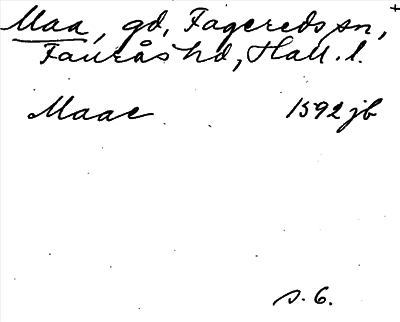 Maa, gd, Fagereds sn,
Faurås hd, Hall. l.
Maae 1592 jb
s. 6.